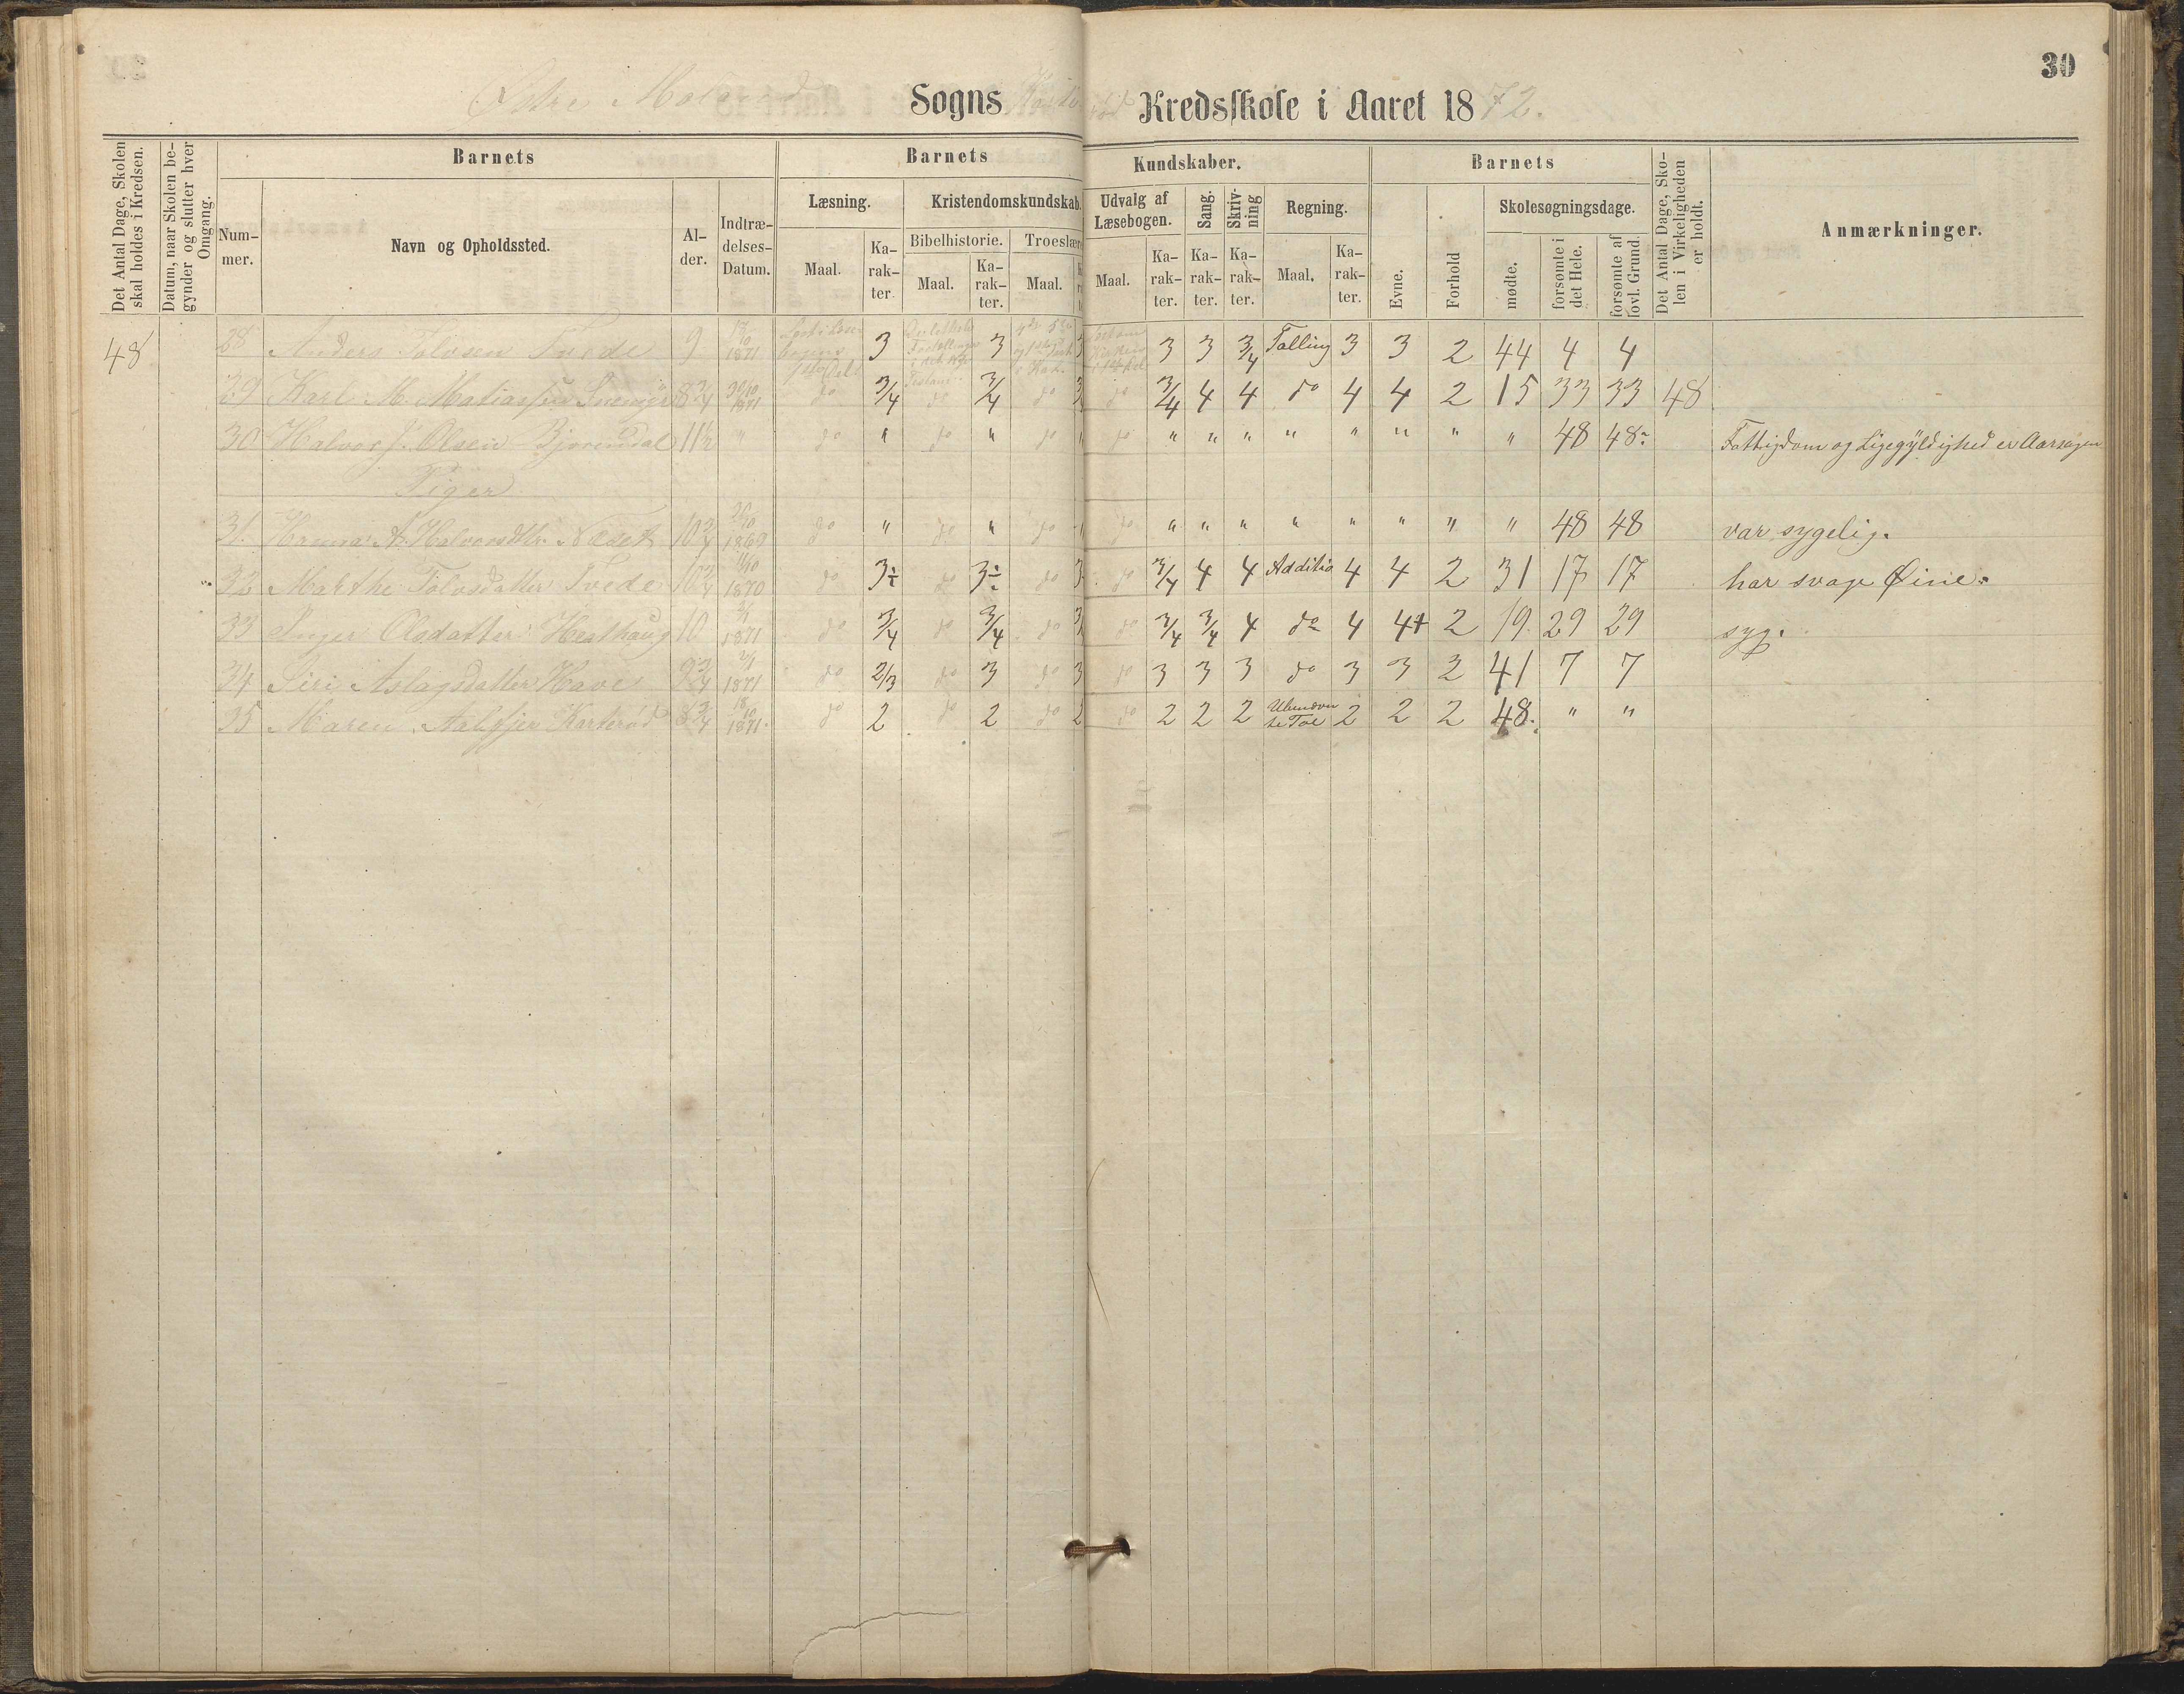 30
Østre Moland Sogns Kredsskole i Aaret 1872.
Det Antal Dage, Skolen skal holdes i Kredsen.
Datum, naar Skolen begynder og slutter hver Omgang.
Barnets
Barnets
Kundskaber.
Barnets
Det Antal Dage, Skolen i Virkeligheden er holdt.
Anmærkninger.
Nummer.
Navn og Opholdssted.
Alder.
Indtrædelses-Datum.
Læsning.
Kristendomskundskab.
Udvalg af Læsebogen.
Sang.
Skrivning
Regning.
Evne.
Forhold
Skolesøgningsdage.
Bibelhistorie.
Troeslære
Maal.
Karakter.
Maal.
Karakter.
Maal.
Maal.
Karakter.
Karakter.
Karakter.
Maal.
Karakter.
mødte.
forsømte i det Hele.
forsømte af lovl. Grund.
48 28 Anders Tolvsen Tvede 9 1871 3 3 3 3 3/4 Tælling 3 3 2 44 4 4
29 Karl M. Matiassen 8 3/4 30/10 1871 do 3/4 do 3/4 do do 3/4 4 4 do 4 4 2 15 33 33 48
30 Halvor J. Olsen Bjorendal 11 1/2 " do " do " do " do " " " " " " " " 48 48 Fattigdom og Ligegyldighed er Aarsagen
Piger
31. Hanna A. Halvorsdtr. Næset 10 3/4 1869 do " do " do " do " " " " " " " " 48 48 var sygelig.
32 Marthe Tolvsdatter Tvede 10 3/4 1870 do 3÷ do 3÷ do 3 do 3/4 4 4 Additio 4 4 2 31 17 17 har svage Øine.
33 Inger Olsdatter Hesthaug 10 1871 do 3/4 do 3/4 do do 3/4 3/4 4 do 4 4+ 2 19 29 29 syg.
34 Siri Aslagsdatter Have 9 3/4 2/1 1871 do 2/3 do 3 do 3 do 3 3 3 do 3 3 2 41 7 7
35 Maren Aalgjer Karterød 8 3/4 1871. do 2 do 2 do 2 do 2 2 2 2 2 2 48. " "